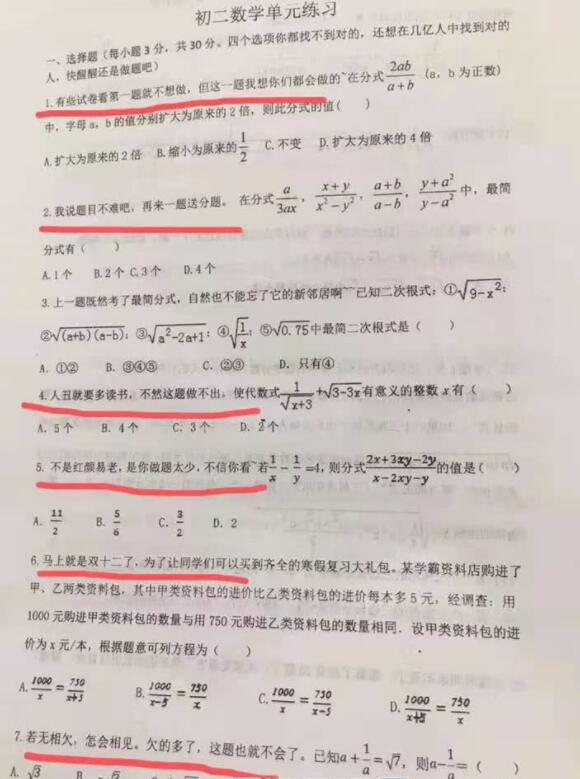 初二数学单元练习
一、选择题（每小题3分，共30分。四个选项你都找不到对的，还想在几亿人中找到对的
人，快醒醒还是做题吧）
1.有些试卷看第一题就不想做，但这一题我想你们都会做的~在分式2ab/(a+b)（a，b为正数）
中，字母a，b的值分别扩大为原来的2倍，则此分式的值(    )
A.扩大为原来的2倍 B.缩小为原来的1/2 C.不变 D.扩大为原来的4倍
2.我说题目不难吧，再来一题送分题。在分式a/3ax，(x+y)/(x²-y²)，(a+b)/(a-b)，(y+a²)/(y-a²)中，最简
分式有（    ）
A.1个 B.2个 C.3个 D.4个
3.上一题既然考了最简分式，自然也不能忘了它的新邻居啊~~已知二次根式：①√(9-x²)；
②√((a+b)(a-b))；③√(a²-2a+1)；④√(1/x)；⑤√0.75中最简二次根式是（    ）
A. ①② B. ③④⑤ C. ②③ D. 只有④
4.人丑就要多读书，不然这题做不出，使代数式1/√(x+3)+√(3-3x)有意义的整数x有（    ）
A. 5个 B. 4个 C. 3个 D. 2个
5. 不是红颜易老，是你做题太少，不信你看~若1/x-1/y=4，则分式(2x+3xy-2y)/(x-2xy-y)的值是（    ）
A. 11/2 B. 5/6 C. 3/2 D. 2
6.马上就是双十二了，为了让同学们可以买到齐全的寒假复习大礼包。某学霸资料店购进了
甲、乙两类资料包，其中甲类资料包的进价比乙类资料包的进价每本多5元，经调查：用
1000元购进甲类资料包的数量与用750元购进乙类资料包的数量相同．设甲类资料包的进
价为x元/本，根据题意可列方程为（    ）
A. 1000/x=750/(x+5) B. 1000/(x-5)=750/x C. 1000/x=750/(x-5) D. 1000/(x+5)=750/x
7.若无相欠，怎会相见。欠的多了，这题也就不会了。已知a+1/a=√7，则a-1/a=（    ）
A. √3